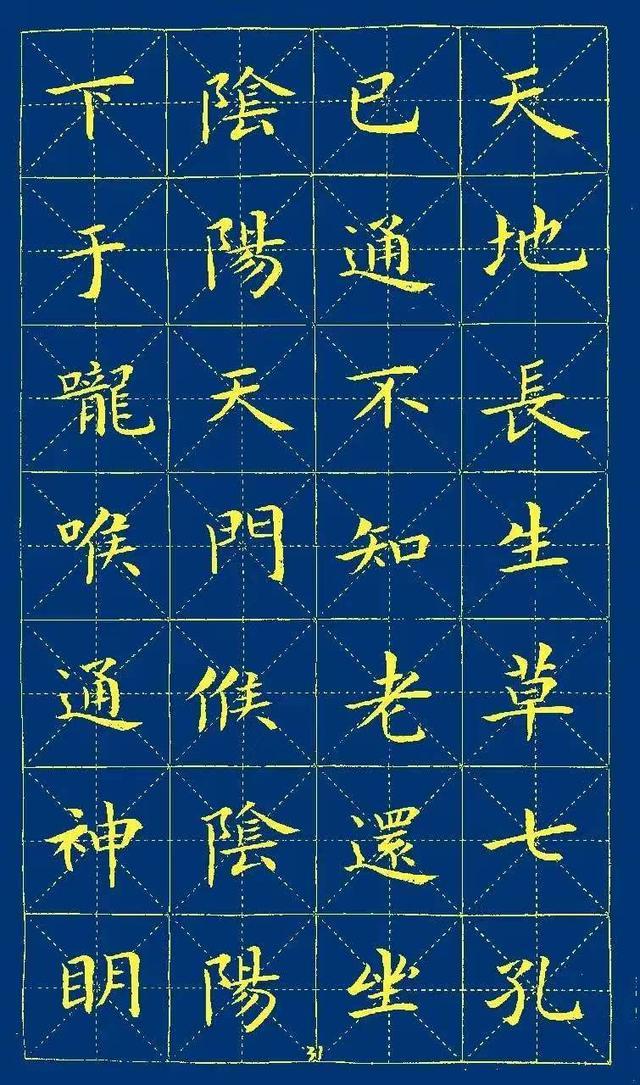 天地長生草七孔
已通不知老還坐
陰陽天門候陰陽
下于嚨喉通神明
31